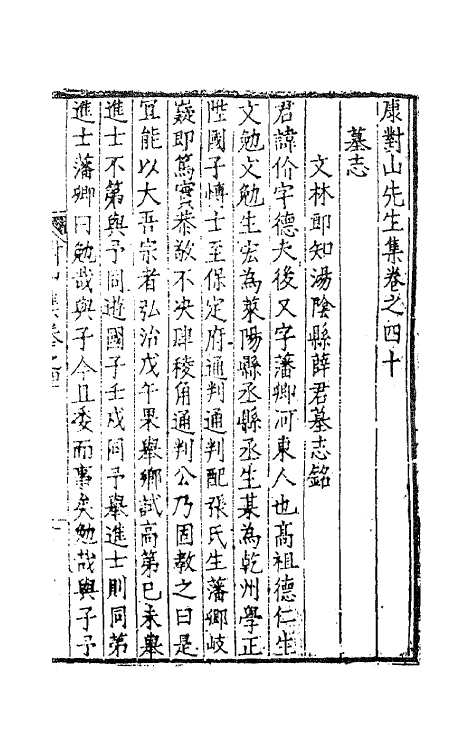 康對山先生集卷之四十
墓志
文林郎知湯陰縣薛君墓志銘
君諱价字德夫後又字藩卿河東人也高祖德仁生
文勉文勉生宏為萊陽縣丞縣丞生某為乾州學正
陞國子愽士至保定府通判通判配張氏生藩卿岐
嶷即篤實恭敬不決肆稜角通判公乃固教之曰是
宜能以大吾宗者弘治戊午果舉鄉試高第巳未舉
進士不第與予同遊國子壬戌同予舉進士則同第
進士藩卿曰勉哉與子今且委而事矣勉哉與子予